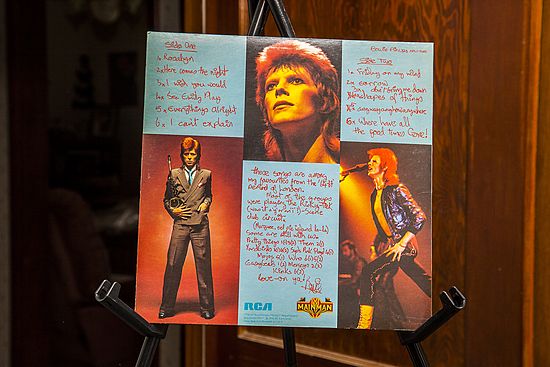 Side One
1x Rosalyn
2x Here comes the night
3x I wish you would
4x See Emily Play
5x Everythings alright
6x I can't explain
Side Two
1x Friday on my mind
2x sorrow
3x Don't bring me down
4x Shapes of things
5x anyway anyhow anywhere
6x Where have all
the good times Gone!
These songs are among
my favourites from the '64-67
period of London.
Most of the groups
were playing the Ricky-Tick
(was it a 'y' or an 'i'?) -Scene
club circuit
(Marquee, eel pie island la-la)
Some are still with us
Pretty Things Them
Syds Pink Floyd
Mojos Who
Easybeats Merseys
Kinks
Love-on ya!
RCA
MAINMAN